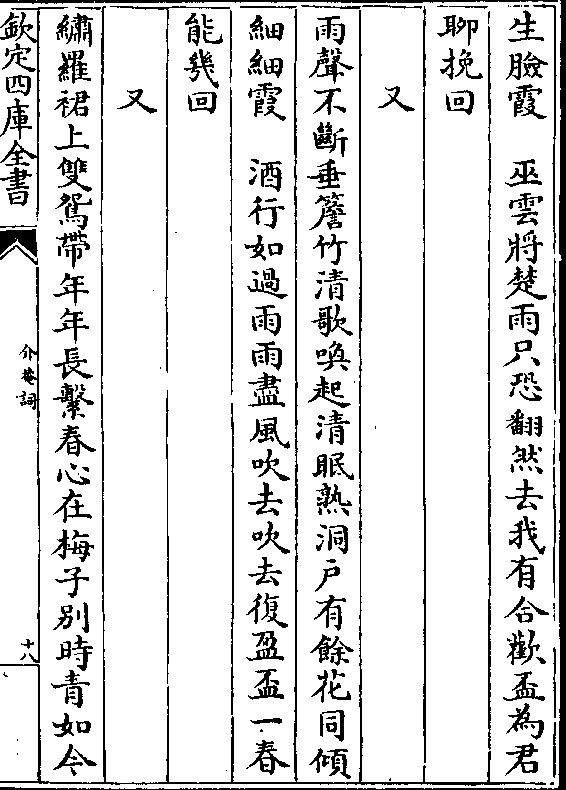 生臉霞　巫雲將楚雨只恐翻然去我有合歡盃為君
聊挽回
又
雨聲不斷垂簷竹清歌喚起清眠熟洞戶有餘花同傾
細細霞　酒行如過雨雨盡風吹去吹去復盈盃一春
能幾回
又
繡羅裙上雙鴛帶年年長繫春心在梅子別時青如今
欽定四庫全書
介菴詞
十八